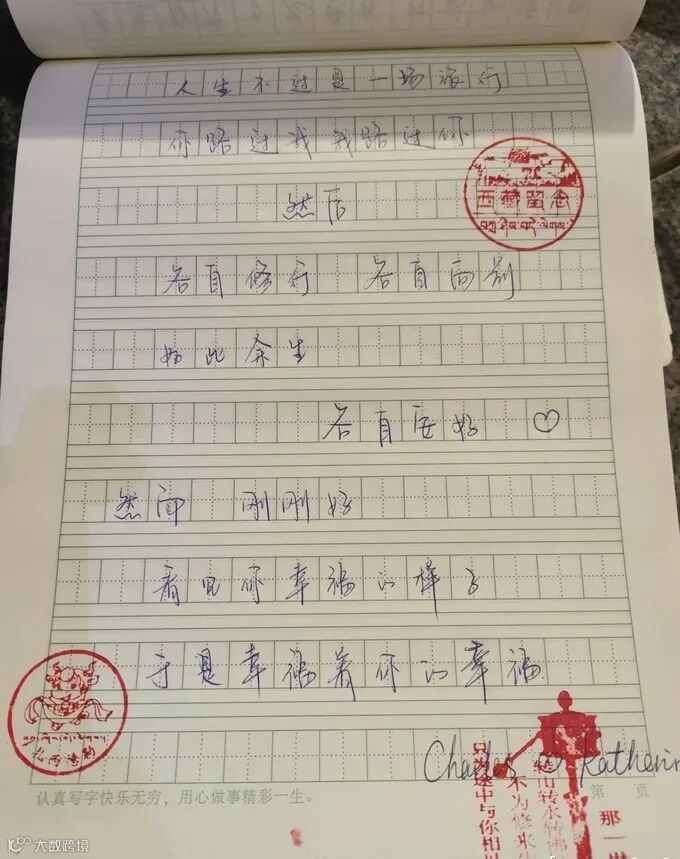 人生不过是一场旅行
你路过我我路过你
西藏留念
然后
各自修行 各自离别
如此余生
各自安好 ♡
然而 刚刚好
看见你幸福的样子
于是幸福着你的幸福
Charles @ Katherin
只为途中与你相
不为修来
转山转水转佛
那一世
认真写字快乐无穷，用心做事精彩一生。
第 页
大数跨境